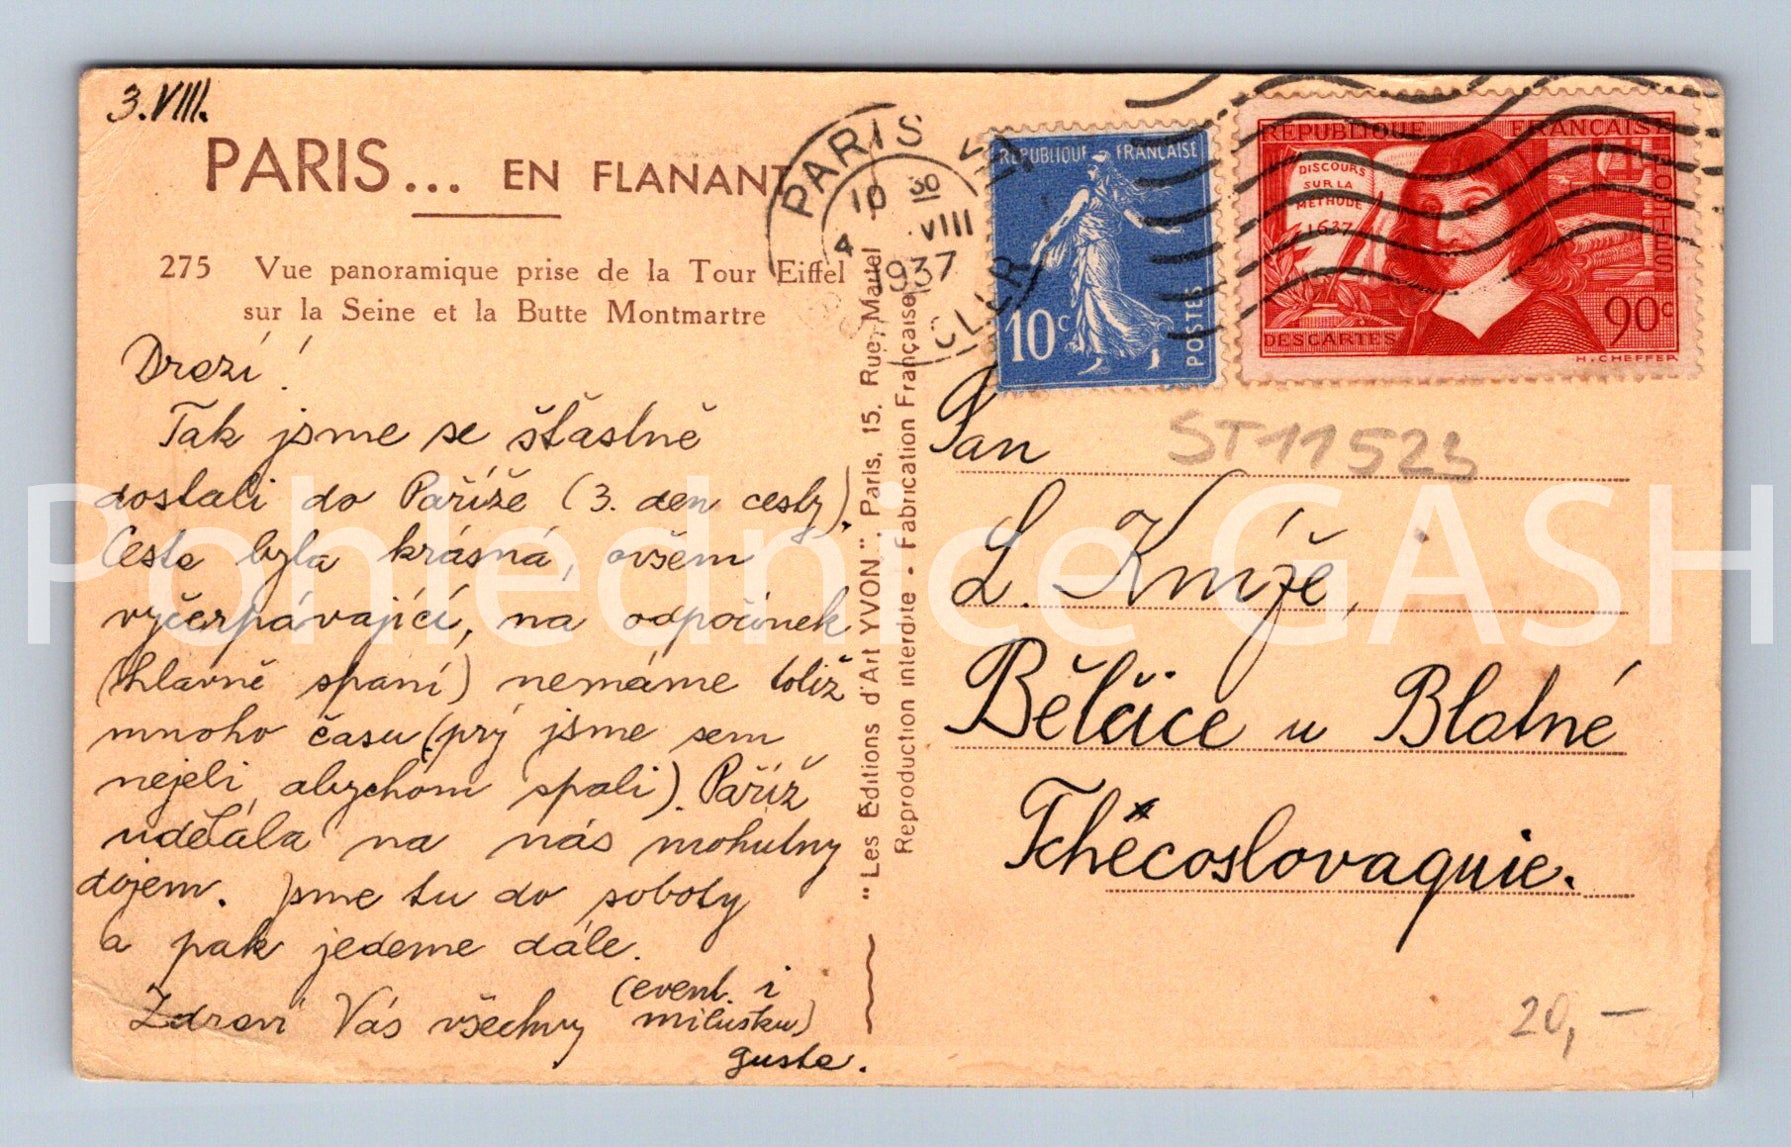 3.VIII.
PARIS... EN FLANANT
275 Vue panoramique prise de la Tour Eiffel
sur la Seine et la Butte Montmartre
Drazí!
Tak jsme se šťastně
dostali do Paříže (3. den cesty).
Cesta byla krásná, ovšem
vyčerpávající, na odpočinek
(hlavně spaní) nemáme totiž
mnoho času (prý jsme sem
nejeli, abychom spali). Paříž
udělala na nás mohutný
dojem. Jsme tu do soboty
a pak jedeme dále.
Zdraví Vás všechny (event. i
milusku)
Gusta.
"Les Éditions d'Art YVON". Paris, 15, Rue Martel
Reproduction interdite - Fabrication Française
PARIS VIII
10 30
4 .VIII
1937
RÉPUBLIQUE FRANÇAISE
10c
POSTES
RÉPUBLIQUE FRANÇAISE
DISCOURS
SUR LA
MÉTHODE
1637
POSTES
90c
DESCARTES
H. CHEFFER
Pan
ST11523
L. Kníže,
Bělčice u Blatné
Tchécoslovaquie.
20,-
Pohlednice GASH